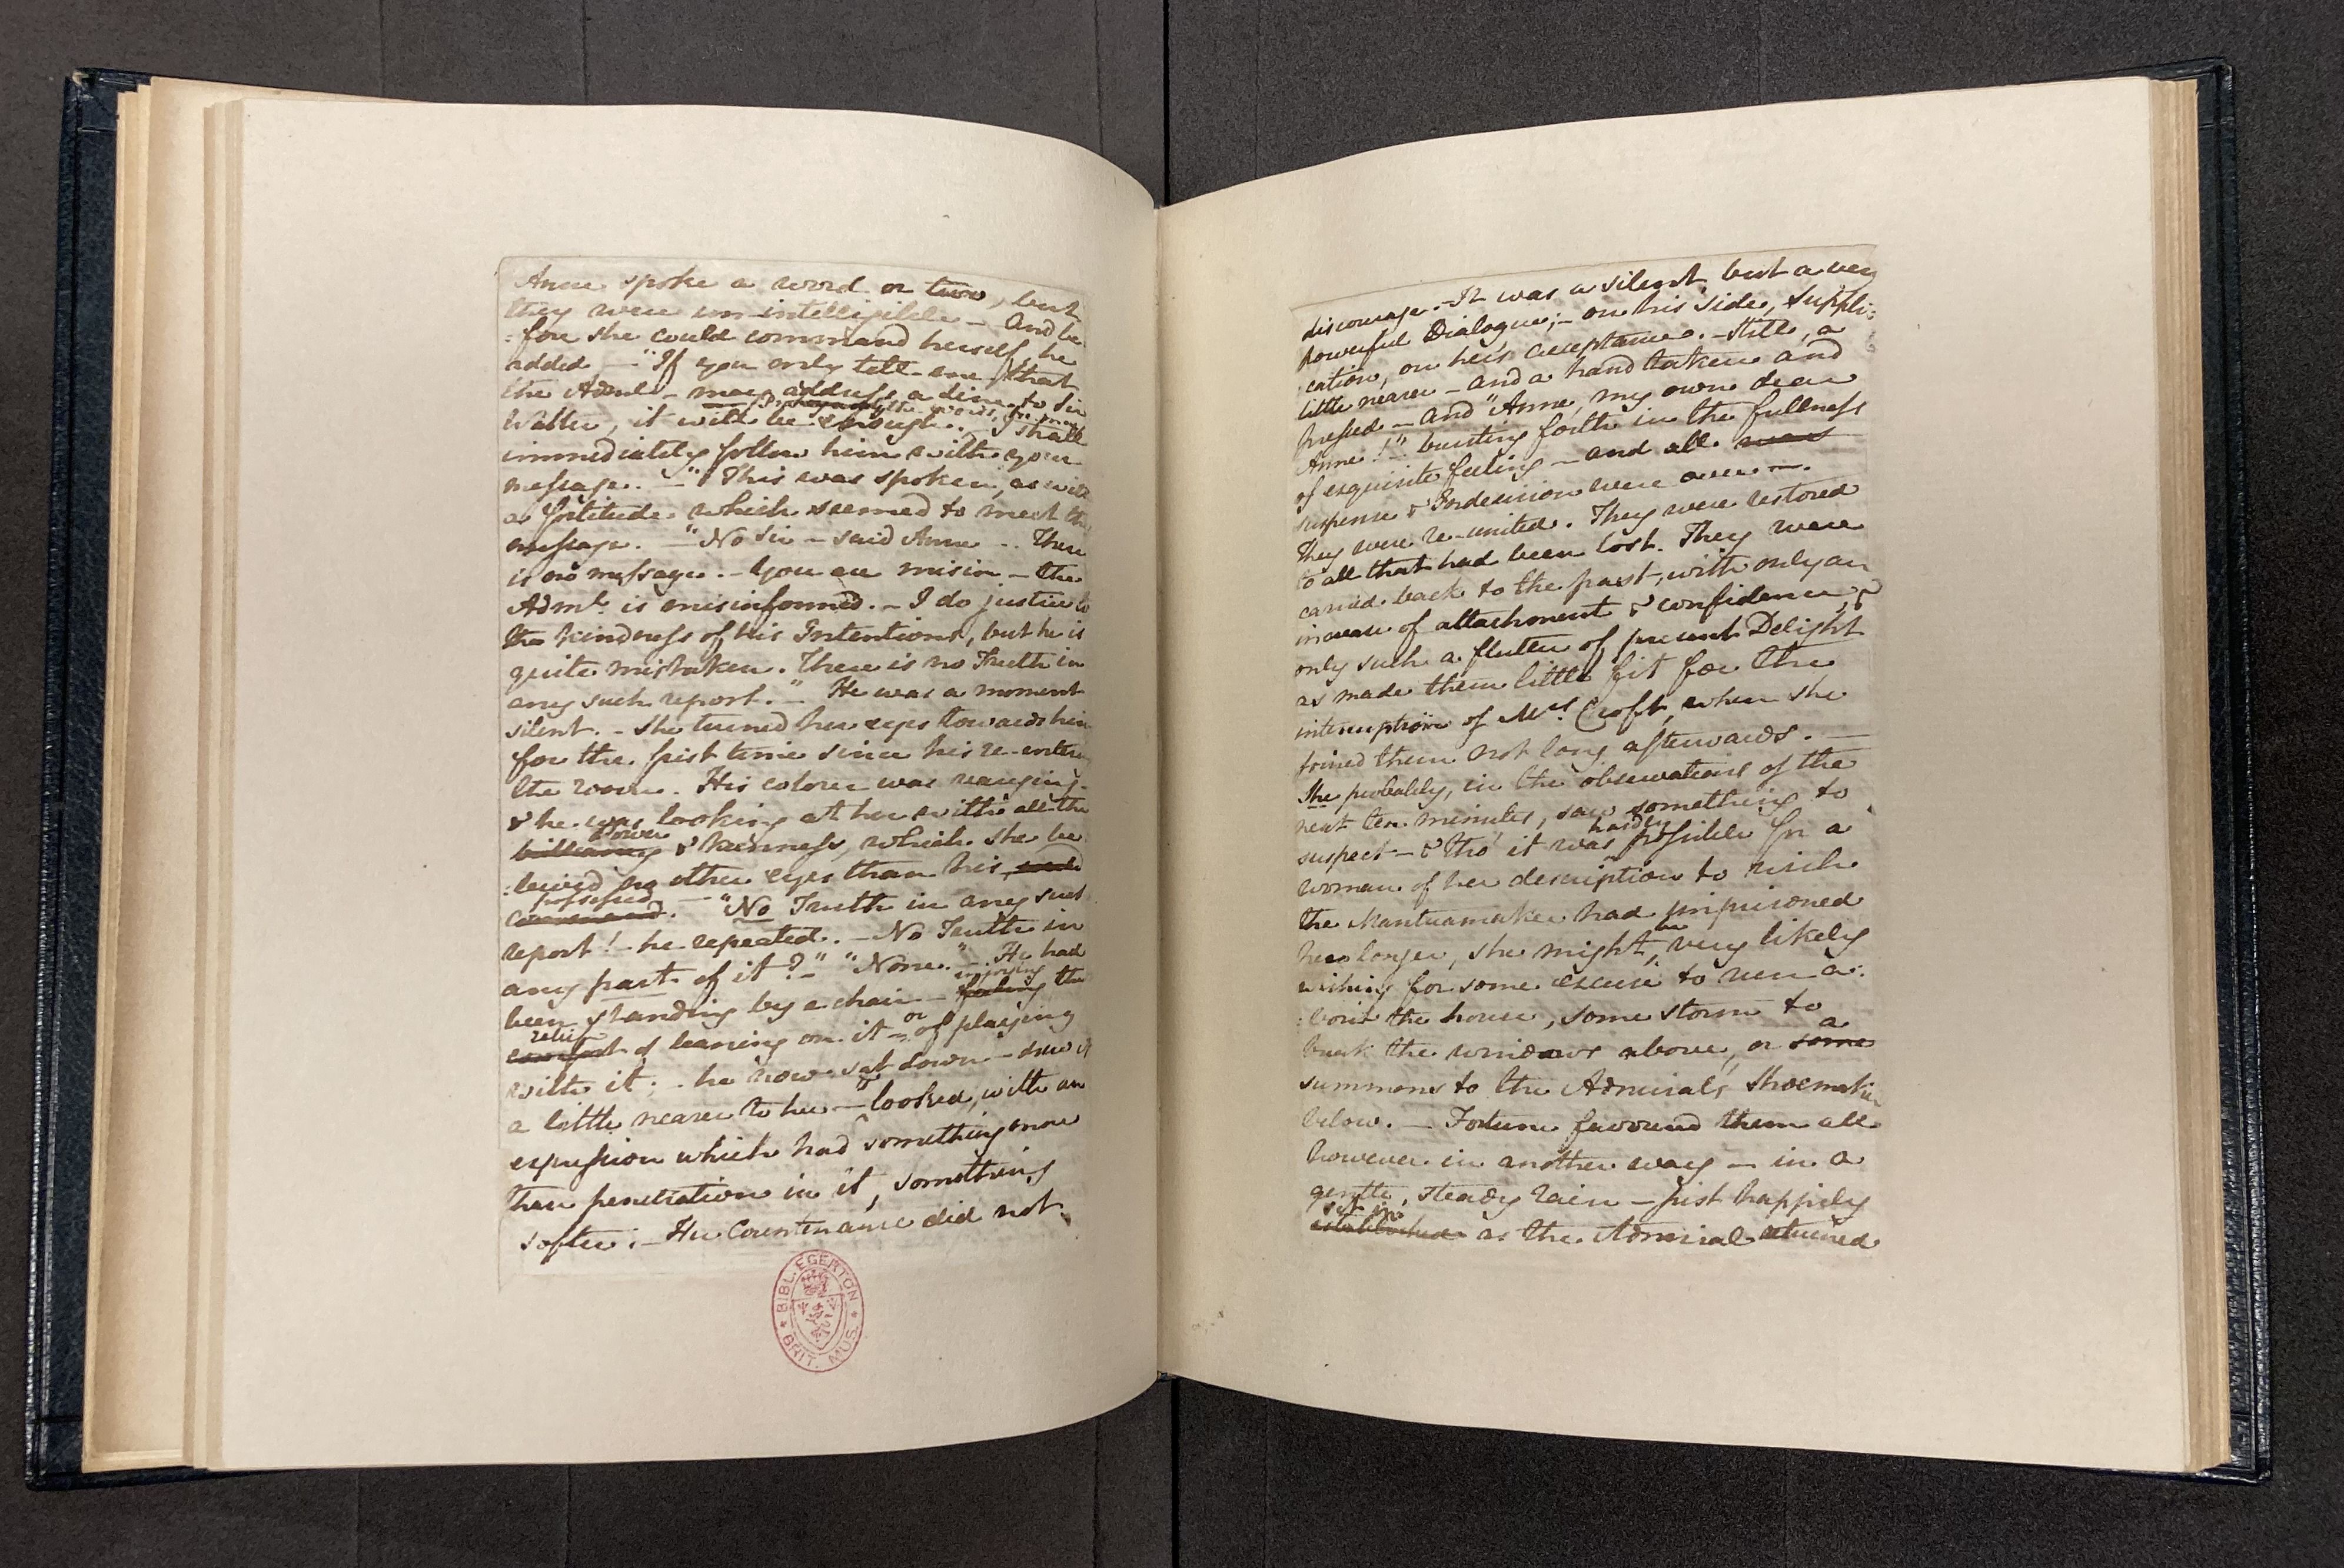 Anne spoke a word or two, but
they were un-intelligible – And be
:fore she could command herself, he
added – "If you only tell me that
the Adml – may address a Line to Sir
Say only the words, he may
Walter, it will be enough. – I shall
immediately follow him with your
message. –" This was spoken, as with
a fortitude which seemed to meet the
message. – "No Sir – said Anne – There
is no message. – You are misin – the
Adml. is misinformed. – I do justice to
the kindness of his Intentions, but he is
quite mistaken. There is no Truth in
any such report." – He was a moment
silent. – She turned her eyes towards him
for the first time since his re-entering
the room. His colour was varying –
& he was looking at her with all the
Power
& keenness, which she be
:lieved no other eyes than his,
possessed. – "No Truth in any such
report! – he repeated. – No Truth in
any part of it?" – "None." – He had
enjoying
been standing by a chair – feeling the
relief or
comfort of leaning on it – of playing
with it; – he now sat down – drew it
a little nearer to her – & looked, with an
expression which had something more
than penetration in it, something
softer. – Her Countenance did not
BIBL. EGERTON
BRIT. MUS.
discourage. – It was a silent, but a very
powerful Dialogue; – on his side, Suppli:
:cation, on her's acceptance. – Still, a
little nearer – and a hand taken and
pressed – and "Anne, my own dear
Anne!" – bursting forth in the fullness
of exquisite feeling – and all were
suspense & Indecision were over. –
They were re-united. They were restored
to all that had been lost. They were
carried back to the past, with only an
increase of attachment & confidence, &
only such a flutter of present Delight
as made them little fit for the
interruption of Mrs. Croft, when she
joined them not long afterwards. –
She probably, in the observations of the
next ten minutes, saw something to
hardly
suspect – & tho' it was possible for a
woman of her description to wish
the Mantuamaker had imprisoned
be
her longer, she might very likely
wishing for some excuse to run a:
:bout the house, some storm to
a
break the windows above, or some
summons to the Admiral's Shoemaker
below. – Fortune favoured them all
however in another way – in a
gentle, steady rain – just happily
set in
established as the Admiral returned